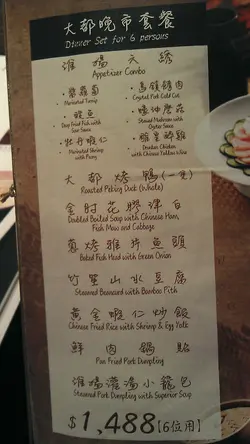 大都晚市套餐
Dinner Set for 6 persons
淮揚六繡
Appetizer Combo
·鎮江餚肉
Crystal Pork Cold Cut
Marinated Turnip
Deep Fried Fish with
Sour Sauce
Steamed Mushroom with
Oyster Sauce
·牡丹蝦仁
Marinated Shrimp
with Peony
Drunken Chicken
with Chinese Yellow Wine
大都烤鴨(一隻)
Roasted Peking Duck (Whole)
金肘花膠津白
Doubled Boiled Soup with Chinese Ham,
Fish Maw and Cabbage
蔥烤雅片魚頭
Baked Fish Head with Green Onion
竹笙山水豆腐
Steamed Beancurd with Bamboo Pith
黃金蝦仁炒飯
Chinese Fried Rice with Shrimp & Egg Yolk
鮮肉鍋貼
Pan Fried Pork Dumpling
淮揚灌湯小籠包
Steamed Pork Dumpling with Superior Soup
$1,488【6位用】